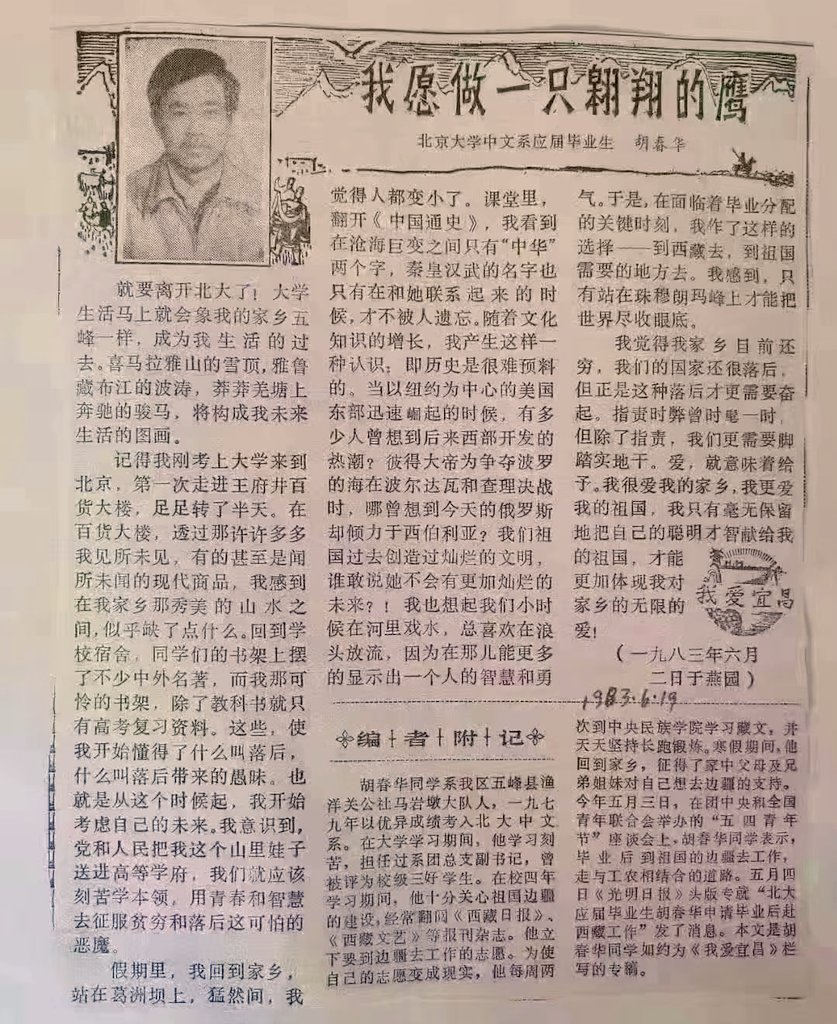 我愿做一只翱翔的鹰
北京大学中文系应届毕业生 胡春华
就要离开北大了！大学
生活马上就会象我的家乡五
峰一样，成为我生活的过
去。喜马拉雅山的雪顶，雅鲁
藏布江的波涛，莽莽羌塘上
奔驰的骏马，将构成我未来
生活的图画。
记得我刚考上大学来到
北京，第一次走进王府井百
货大楼，足足转了半天。在
百货大楼，透过那许许多多
我见所未见，有的甚至是闻
所未闻的现代商品，我感到
在我家乡那秀美的山水之
间，似乎缺了点什么。回到学
校宿舍，同学们的书架上摆
了不少中外名著，而我那可
怜的书架，除了教科书就只
有高考复习资料。这些，使
我开始懂得了什么叫落后，
什么叫落后带来的愚昧。也
就是从这个时候起，我开始
考虑自己的未来。我意识到，
党和人民把我这个山里娃子
送进高等学府，我们就应该
刻苦学本领，用青春和智慧
去征服贫穷和落后这可怕的
恶魔。
假期里，我回到家乡，
站在葛洲坝上，猛然间，我
觉得人都变小了。课堂里，
翻开《中国通史》，我看到
在沧海巨变之间只有“中华”
两个字，秦皇汉武的名字也
只有在和她联系起来的时
候，才不被人遗忘。随着文化
知识的增长，我产生这样一
种认识：即历史是很难预料
的。当以纽约为中心的美国
东部迅速崛起的时候，有多
少人曾想到后来西部开发的
热潮？彼得大帝为争夺波罗
的海在波尔达瓦和查理决战
时，哪曾想到今天的俄罗斯
却倾力于西伯利亚？我们祖
国过去创造过灿烂的文明，
谁敢说她不会有更加灿烂的
未来？！我也想起我们小时
候在河里戏水，总喜欢在浪
头放流，因为在那儿能更多
的显示出一个人的智慧和勇
气。于是，在面临着毕业分配
的关键时刻，我作了这样的
选择——到西藏去，到祖国
需要的地方去。我感到，只
有站在珠穆朗玛峰上才能把
世界尽收眼底。
我觉得我家乡目前还
穷，我们的国家还很落后，
但正是这种落后才更需要奋
起。指责时弊曾时髦一时，
但除了指责，我们更需要脚
踏实地干。爱，就意味着给
予。我很爱我的家乡，我更爱
我的祖国，我只有毫无保留
地把自己的聪明才智献给我
的祖国，才能
更加体现我对
家乡的无限的
爱！
我爱宜昌
（一九八三年六月
二日于燕园）
1983.6.19
编者附记
胡春华同学系我区五峰县渔
洋关公社马岩墩大队人，一九七
九年以优异成绩考入北大中文
系。在大学学习期间，他学习刻
苦，担任过系团总支副书记，曾
被评为校级三好学生。在校四年
学习期间，他十分关心祖国边疆
的建设，经常翻阅《西藏日报》、
《西藏文艺》等报刊杂志。他立
下要到边疆去工作的志愿。为使
自己的志愿变成现实，他每周两
次到中央民族学院学习藏文，并
天天坚持长跑锻炼。寒假期间，他
回到家乡，征得了家中父母及兄
弟姐妹对自己想去边疆的支持。
今年五月三日，在团中央和全国
青年联合会举办的“五四青年
节”座谈会上，胡春华同学表示，
毕业后到祖国的边疆去工作，
走与工农相结合的道路。五月四
日《光明日报》头版专就“北大
应届毕业生胡春华申请毕业后赴
西藏工作”发了消息。本文是胡
春华同学如约为《我爱宜昌》栏
写的专稿。